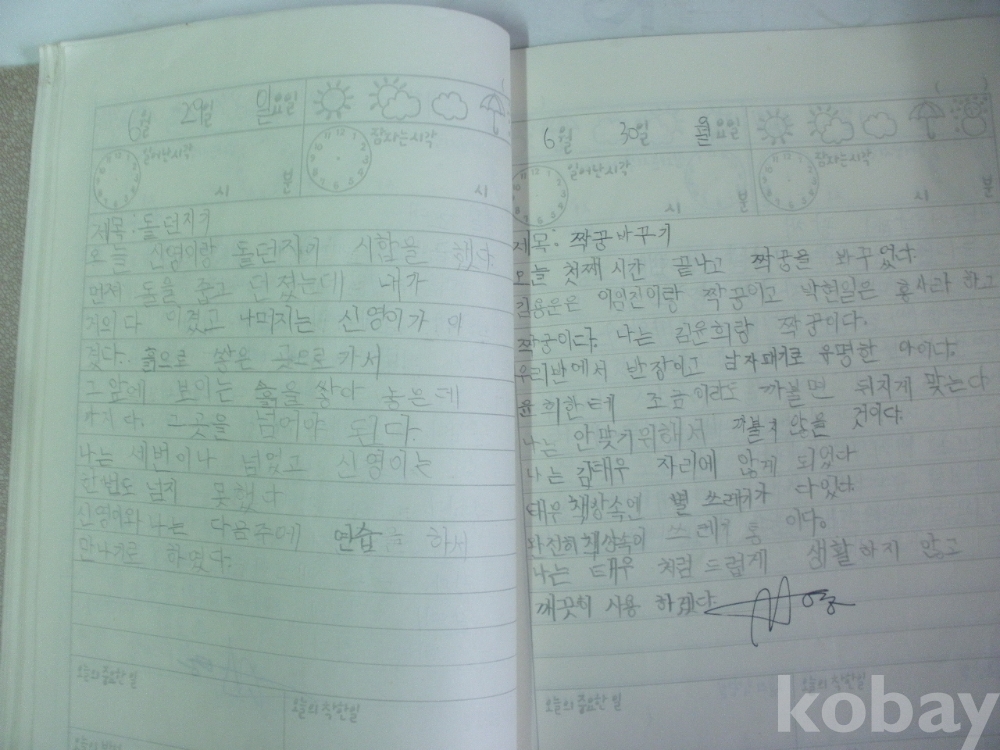 6월 29일 일요일
일어난시각
잠자는시각
시 분
시
제목: 돌던지기
오늘 신영이랑 돌던지기 시합을 했다.
먼저 돌을 줍고 던졌는데 내가
거의다 이겼고 나머지는 신영이가 이
겼다. 흙으로 쌓은 곳으로가서
그앞에 보이는 흙을 쌓아 놓은데
까지다. 그곳을 넘어야 된다.
나는 세번이나 넘었고 신영이는
한번도 넘지 못했다
신영이와 나는 다음주에 연습을 하서
만나기로 하였다.
오늘의 중요한 일
오늘의 착한일
6월 30일 월요일
일어난시각
잠자는시각
시 분
시 분
제목: 짝꿍바꾸기
오늘 첫째시간 끝나고 짝꿍을 바꾸었다.
김용운은 이원진이랑 짝꿍이고 박현일은 혼자라 하고
짝꿍이다. 나는 김윤희랑 짝꿍이다.
우리반에서 반장이고 남자패기로 유명한 아이다.
윤희한테 조금이라도 까불면 뒤지게 맞는다
나는 안맞기위해서 까불지 않을 것이다.
나는 김태우 자리에 앉게 되었다
태우 책상속엔 별 쓰레기가 다있다.
완전히 책상속이 쓰레기통 이다.
나는 태우 처럼 드럽게 생활하지 않고
깨끗히 사용 하겠다
오늘의 중요한 일
오늘의 착한일
kobay